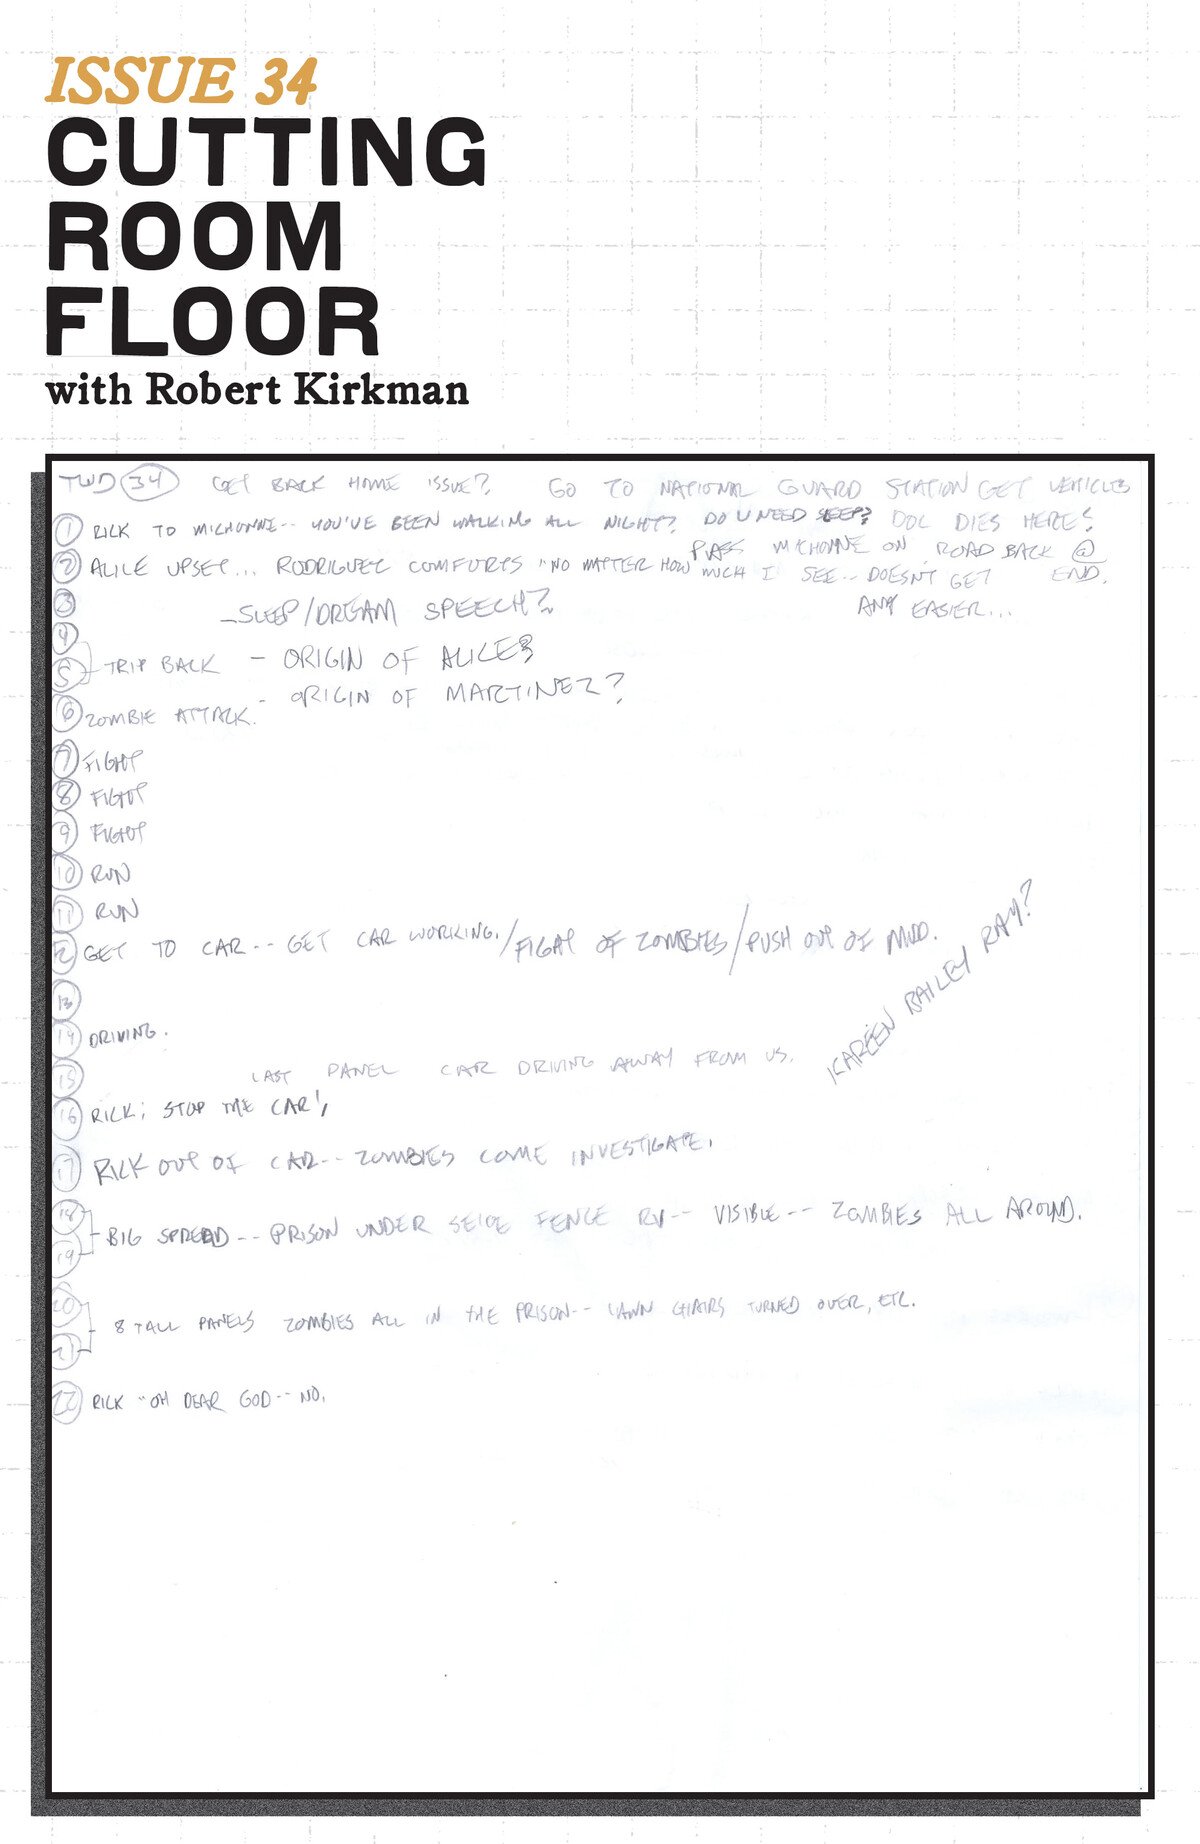 ISSUE 34
CUTTING
ROOM
FLOOR
with Robert Kirkman
TWD 34 GET BACK HOME ISSUE? GO TO NATIONAL GUARD STATION GET VEHICLES
1 RICK TO MICHONNE-- YOU'VE BEEN WALKING ALL NIGHT? DO U NEED SLEEP? DOC DIES HERE?
PASS MICHONNE ON ROAD BACK @ END.
2 ALICE UPSET... RODRIGUEZ COMFORTS "NO MATTER HOW MUCH I SEE-- DOESN'T GET
ANY EASIER...
3 -SLEEP/DREAM SPEECH?
4
5 TRIP BACK - ORIGIN OF ALICE?
- ORIGIN OF MARTINEZ?
6 ZOMBIE ATTACK.
7 FIGHT
8 FIGHT
9 FIGHT
10 RUN
11 RUN
12 GET TO CAR-- GET CAR WORKING./FIGHT OF ZOMBIES/PUSH OUT OF MUD.
KAREEN BAILEY RAY?
13
14 DRIVING.
15 LAST PANEL CAR DRIVING AWAY FROM US.
16 RICK: STOP THE CAR!
17 RICK OUT OF CAR-- ZOMBIES COME INVESTIGATE.
18
19 BIG SPREAD-- PRISON UNDER SEIGE FENCE RV-- VISIBLE-- ZOMBIES ALL AROUND.
20
21 8 TALL PANELS ZOMBIES ALL IN THE PRISON-- LAWN CHAIRS TURNED OVER, ETC.
22 RICK "OH DEAR GOD-- NO.